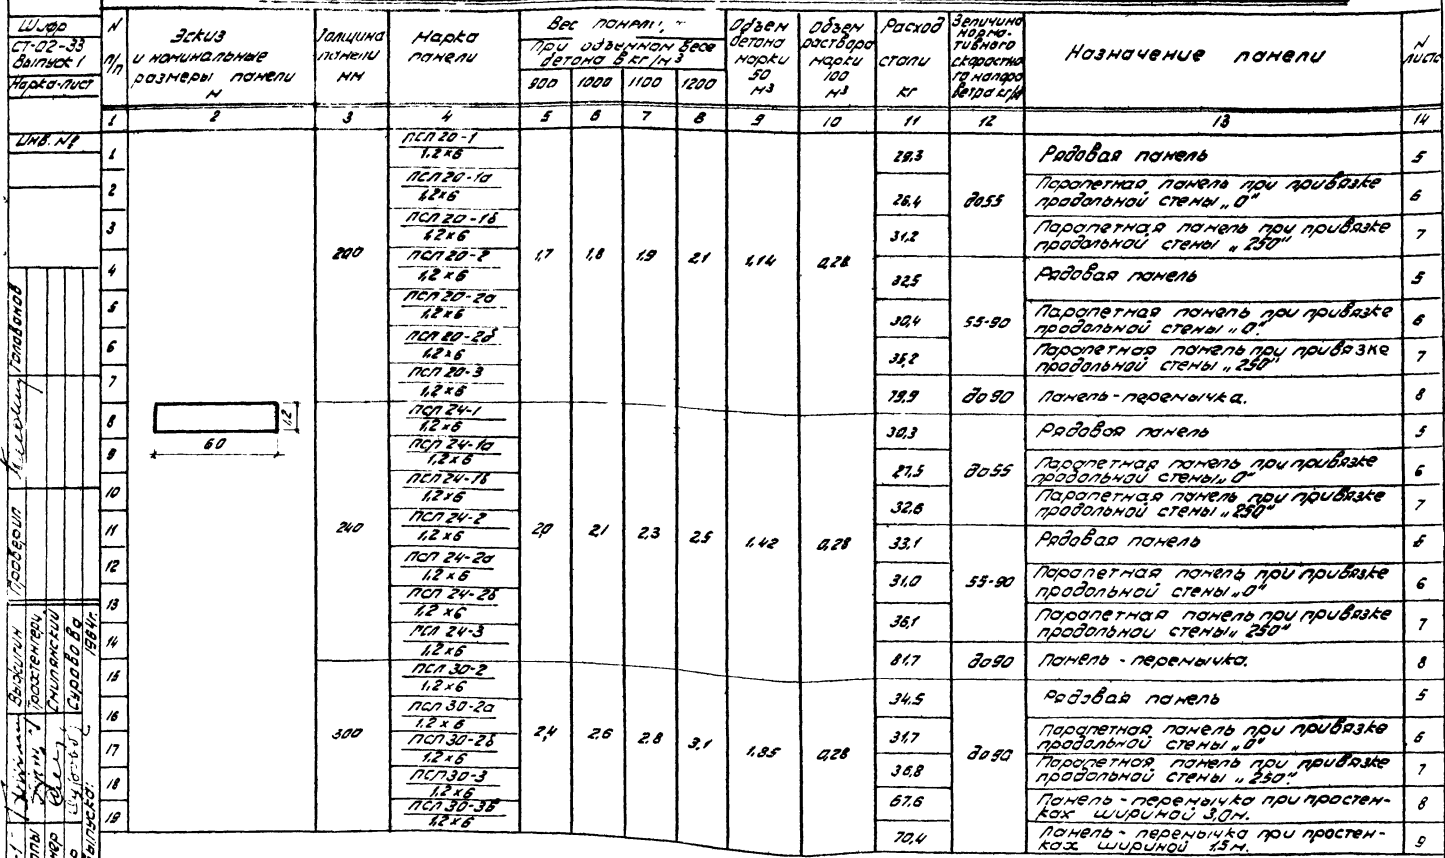 Шифр
СТ-02-33
Выпуск 1
Марка-лист
Инв. №
N п/п
Эскиз
и номинальные
размеры панели
м
Толщина
панели
мм
Марка
панели
Вес панели, т
При объемном весе
бетона в кг/м³
900 1000 1100 1200
Объем
бетона
марки
50
м³
Объем
раствора
марки
100
м³
Расход
стали
кг
Величина
норма-
тивного
скоростно
го напора
ветра кг/м
Назначение панели
N
листа
1 2 3 4 5 6 7 8 9 10 11 12 13 14
200 1,7 1,8 1,9 2,1 1,14 0,28
1 ПСП 20-1 / 1,2×6 29,3 до 55 Рядовая панель 5
2 ПСП 20-1а / 1,2×6 26,4 Парапетная панель при привязке
продольной стены „0" 6
3 ПСП 20-1б / 1,2×6 31,2 Парапетная панель при привязке
продольной стены „250" 7
4 ПСП 20-2 / 1,2×6 32,5 55-90 Рядовая панель 5
5 ПСП 20-2а / 1,2×6 30,4 Парапетная панель при привязке
продольной стены „0". 6
6 ПСП 20-2б / 1,2×6 35,2 Парапетная панель при привязке
продольной стены „250" 7
7 ПСП 20-3 / 1,2×6 79,9 до 90 Панель-перемычка. 8
60
1,2
240 2,0 2,1 2,3 2,5 1,42 0,28
8 ПСП 24-1 / 1,2×6 30,3 до 55 Рядовая панель 5
9 ПСП 24-1а / 1,2×6 27,5 Парапетная панель при привязке
продольной стены „0" 6
10 ПСП 24-1б / 1,2×6 32,6 Парапетная панель при привязке
продольной стены „250" 7
11 ПСП 24-2 / 1,2×6 33,1 55-90 Рядовая панель
12 ПСП 24-2а / 1,2×6 31,0 Парапетная панель при привязке
продольной стены „0" 6
13 ПСП 24-2б / 1,2×6 36,1 Парапетная панель при привязке
продольной стены „250" 7
14 ПСП 24-3 / 1,2×6 81,7 до 90 Панель - перемычка. 8
300 2,4 2,6 2,8 3,1 1,85 0,28
15 ПСП 30-2 / 1,2×6 34,5 до 90 Рядовая панель 5
16 ПСП 30-2а / 1,2×6 31,7 Парапетная панель при привязке
продольной стены „0" 6
17 ПСП 30-2б / 1,2×6 36,8 Парапетная панель при привязке
продольной стены „250". 7
18 ПСП 30-3 / 1,2×6 67,6 Панель - перемычка при простен-
ках шириной 3,0м. 8
19 ПСП 30-3б / 1,2×6 70,4 Панель - перемычка при простен-
ках шириной 1,5м. 9
Проверил
Голованов
Выжигин
Смилянский
Суровова
выпуска:
1964г.